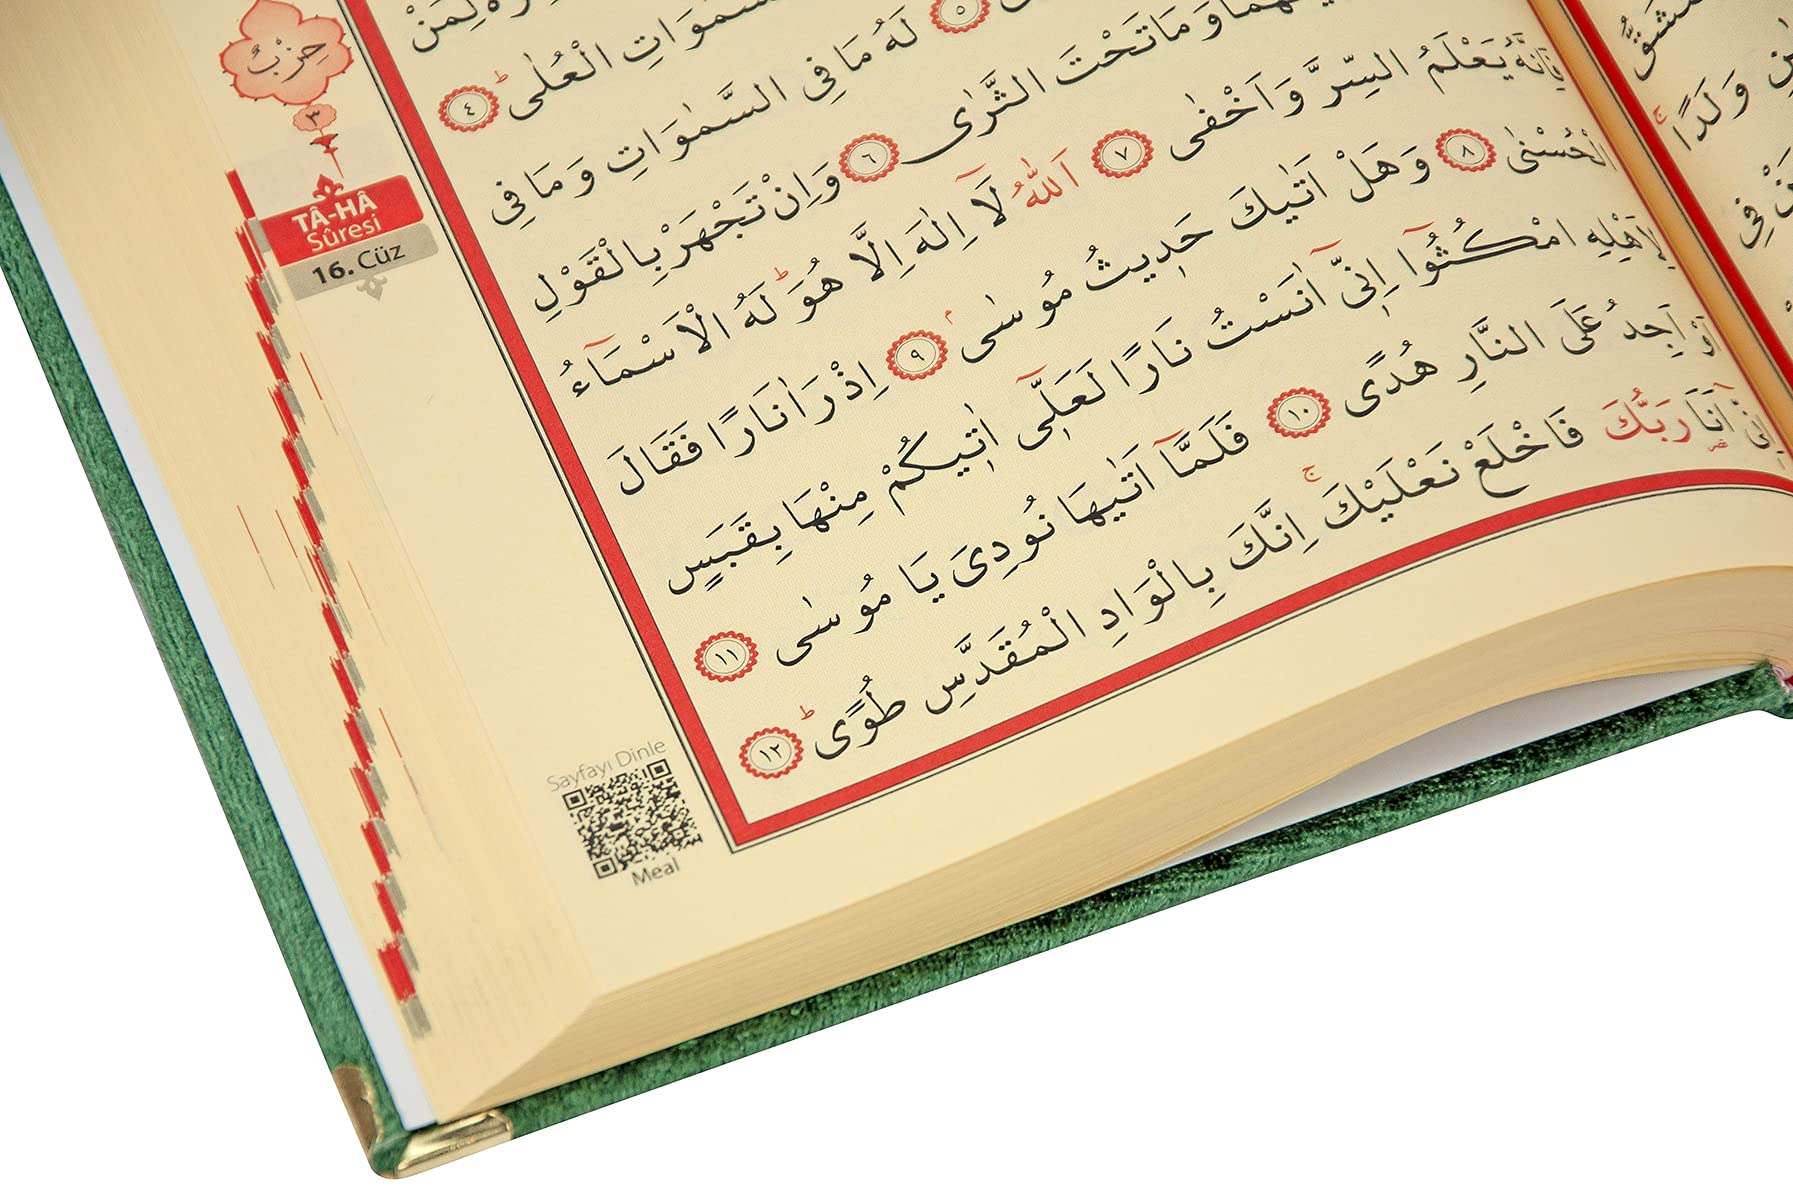 حِزْبٌ
٣
TÂ-HÂ
Sûresi
16. Cüz
لِمَنْ
السَّمٰوَاتِ الْعُلٰىۜ ٤
٥ لَهُ مَا فِي السَّمٰوَاتِ وَمَا فِي
وَمَا تَحْتَ الثَّرٰى ٦ وَاِنْ تَجْهَرْ بِالْقَوْلِ
فَاِنَّهُ يَعْلَمُ السِّرَّ وَاَخْفٰى ٧ اَللّٰهُ لَٓا اِلٰهَ اِلَّا هُوَۜ لَهُ الْاَسْمَٓاءُ
الْحُسْنٰى ٨ وَهَلْ اَتٰيكَ حَد۪يثُ مُوسٰىۢ ٩ اِذْ رَاٰ نَارًا فَقَالَ
لِاَهْلِهِ امْكُثُٓوا اِنّ۪ٓي اٰنَسْتُ نَارًا لَعَلّ۪ٓي اٰت۪يكُمْ مِنْهَا بِقَبَسٍ
اَوْ اَجِدُ عَلَى النَّارِ هُدًى ١٠ فَلَمَّٓا اَتٰيهَا نُودِيَ يَا مُوسٰى ١١
اِنّ۪ٓي اَنَا۬ رَبُّكَ فَاخْلَعْ نَعْلَيْكَۚ اِنَّكَ بِالْوَادِ الْمُقَدَّسِ طُوًىۜ ١٢
Sayfayı Dinle
Meal
وَلَدًاۚ
ف۪ي